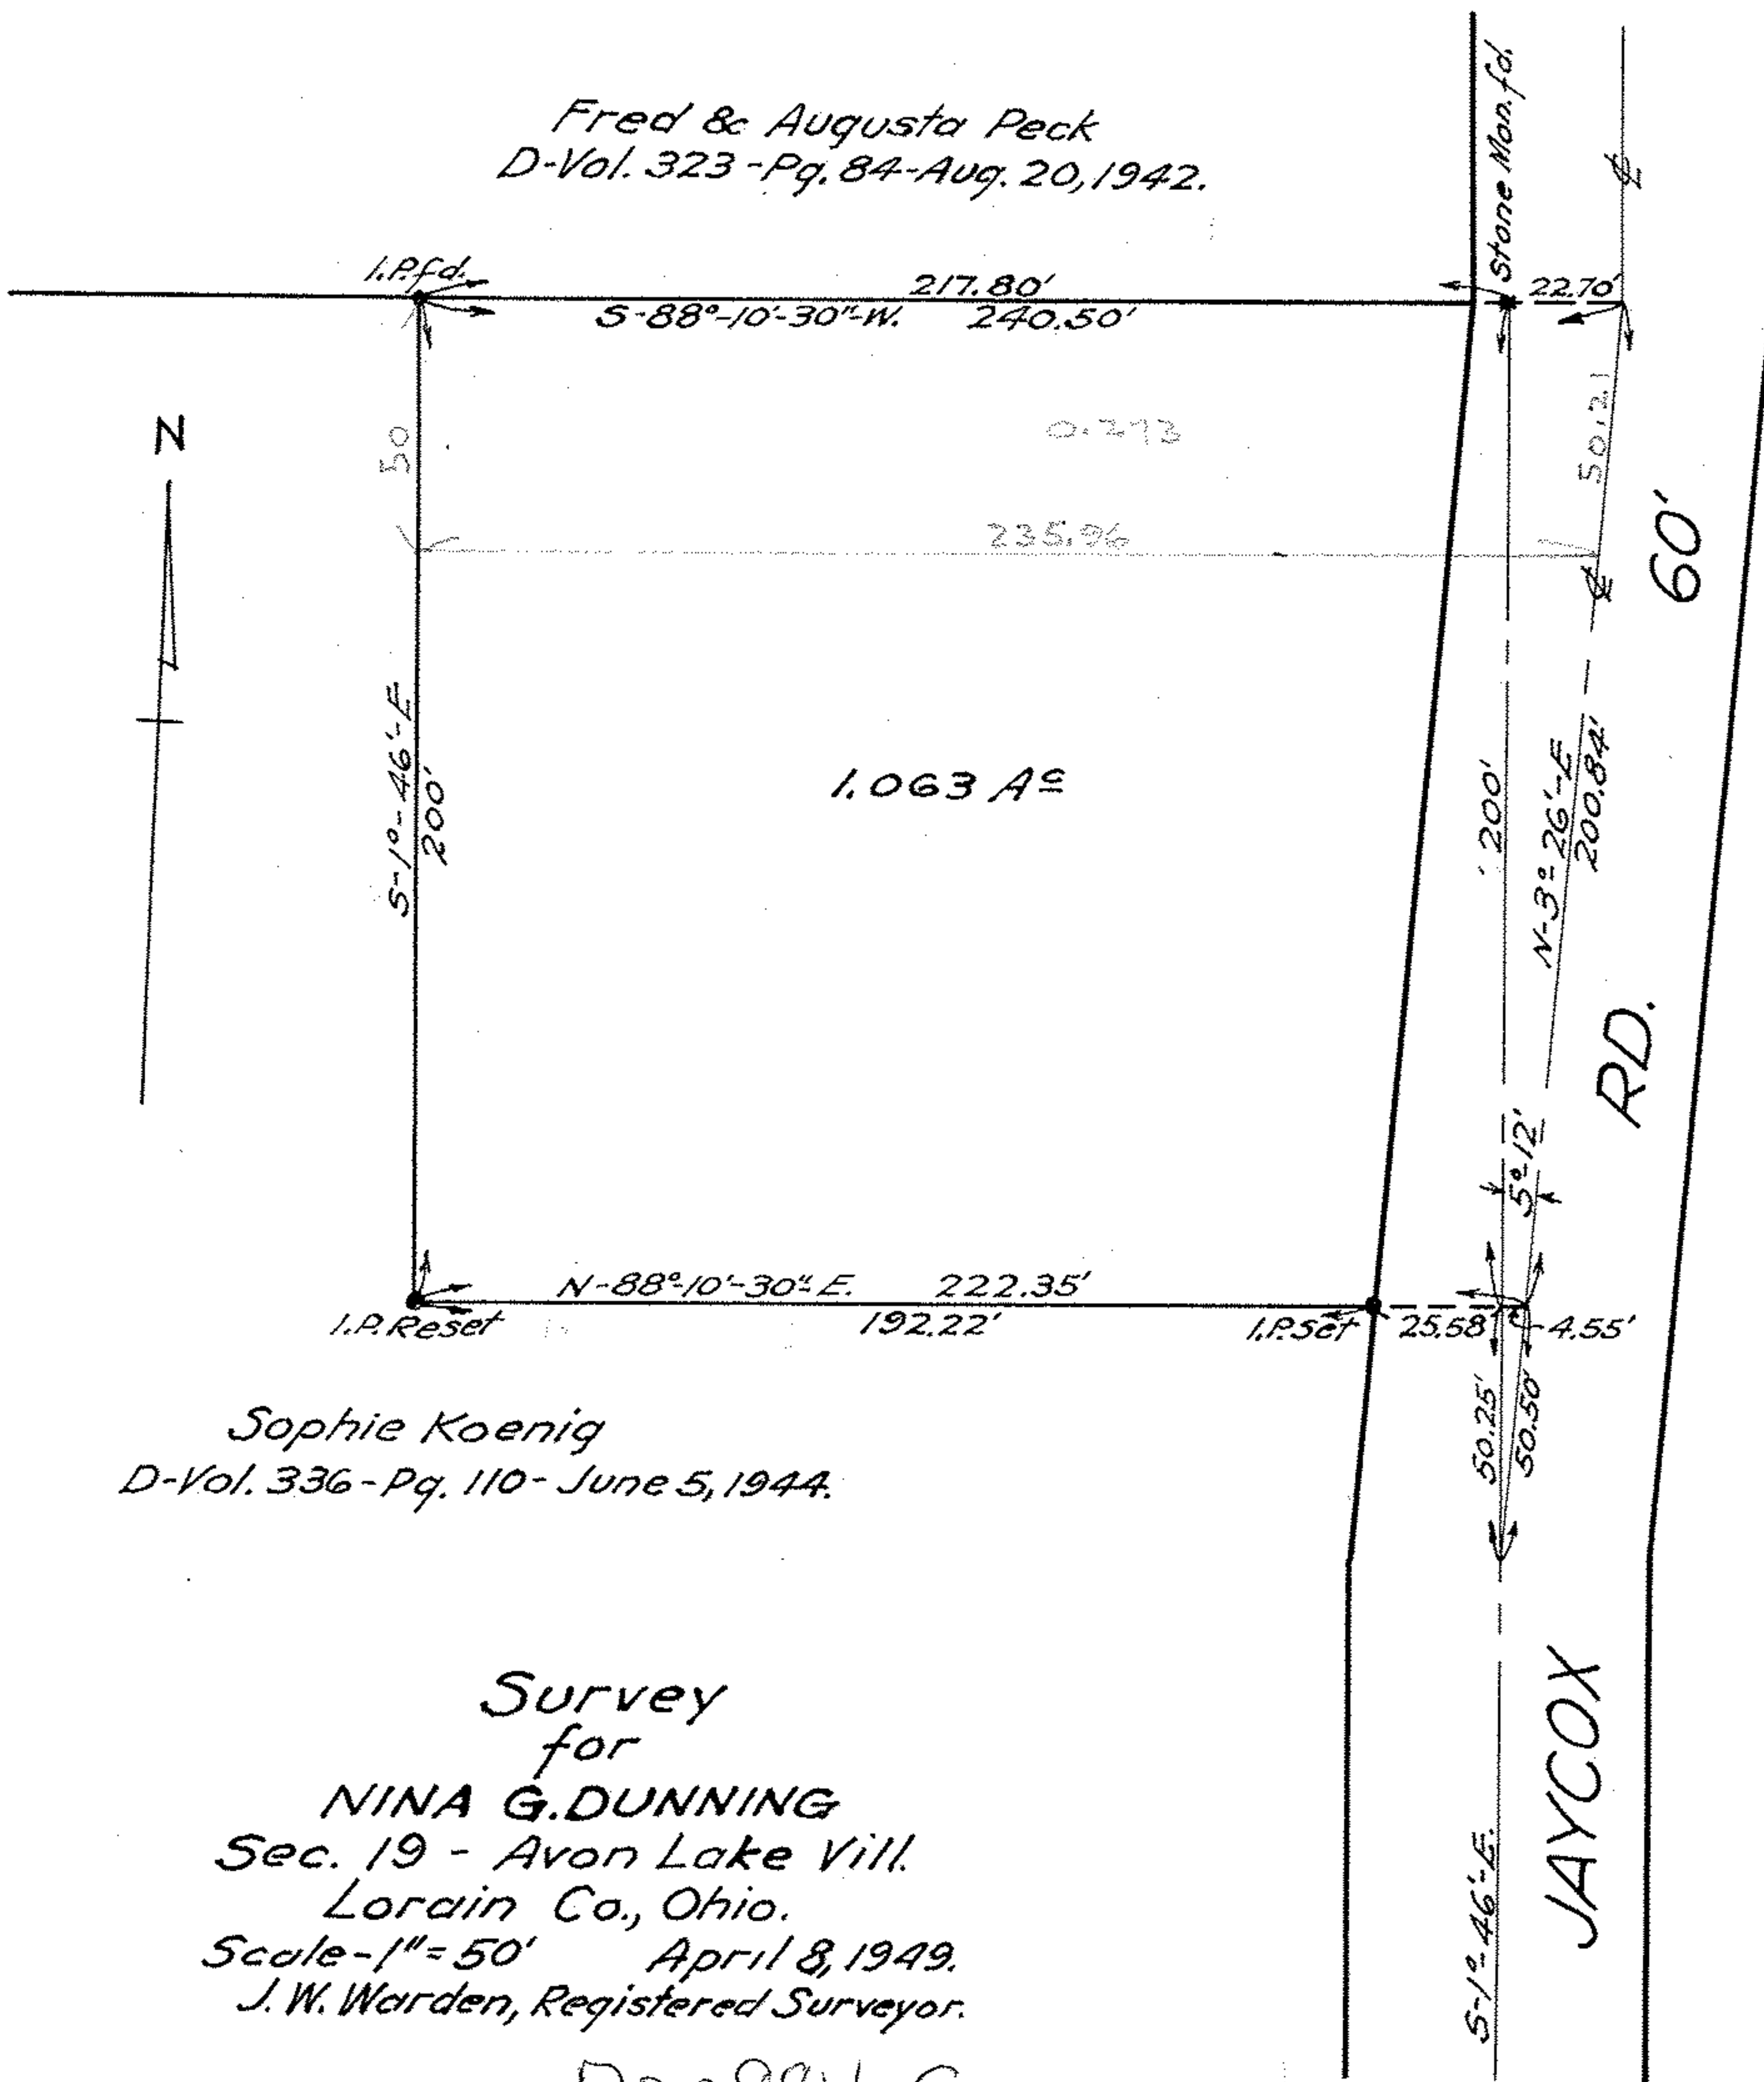 Fred & Augusta Peck
D-Vol. 323-Pg. 84-Aug. 20, 1942.
Stone Mon. fd.
℄
I.P. fd.
217.80'
22.70'
S-88°-10'-30"-W. 240.50'
N
50
0.273
50.21
235.96
℄
60'
S-1°-46'-E
200'
1.063 Ac
200'
N-3°-26'-E
200.84'
RD.
5°-12'
N-88°-10'-30"-E. 222.35'
I.P. Reset
192.22'
I.P. Set
25.58'
4.55'
50.25'
50.50'
Sophie Koenig
D-Vol. 336-Pg. 110-June 5, 1944.
JAYCOX
S-1°-46'-E.
Survey
for
NINA G. DUNNING
Sec. 19 - Avon Lake Vill.
Lorain Co., Ohio.
Scale-1"=50' April 8, 1949.
J. W. Warden, Registered Surveyor.